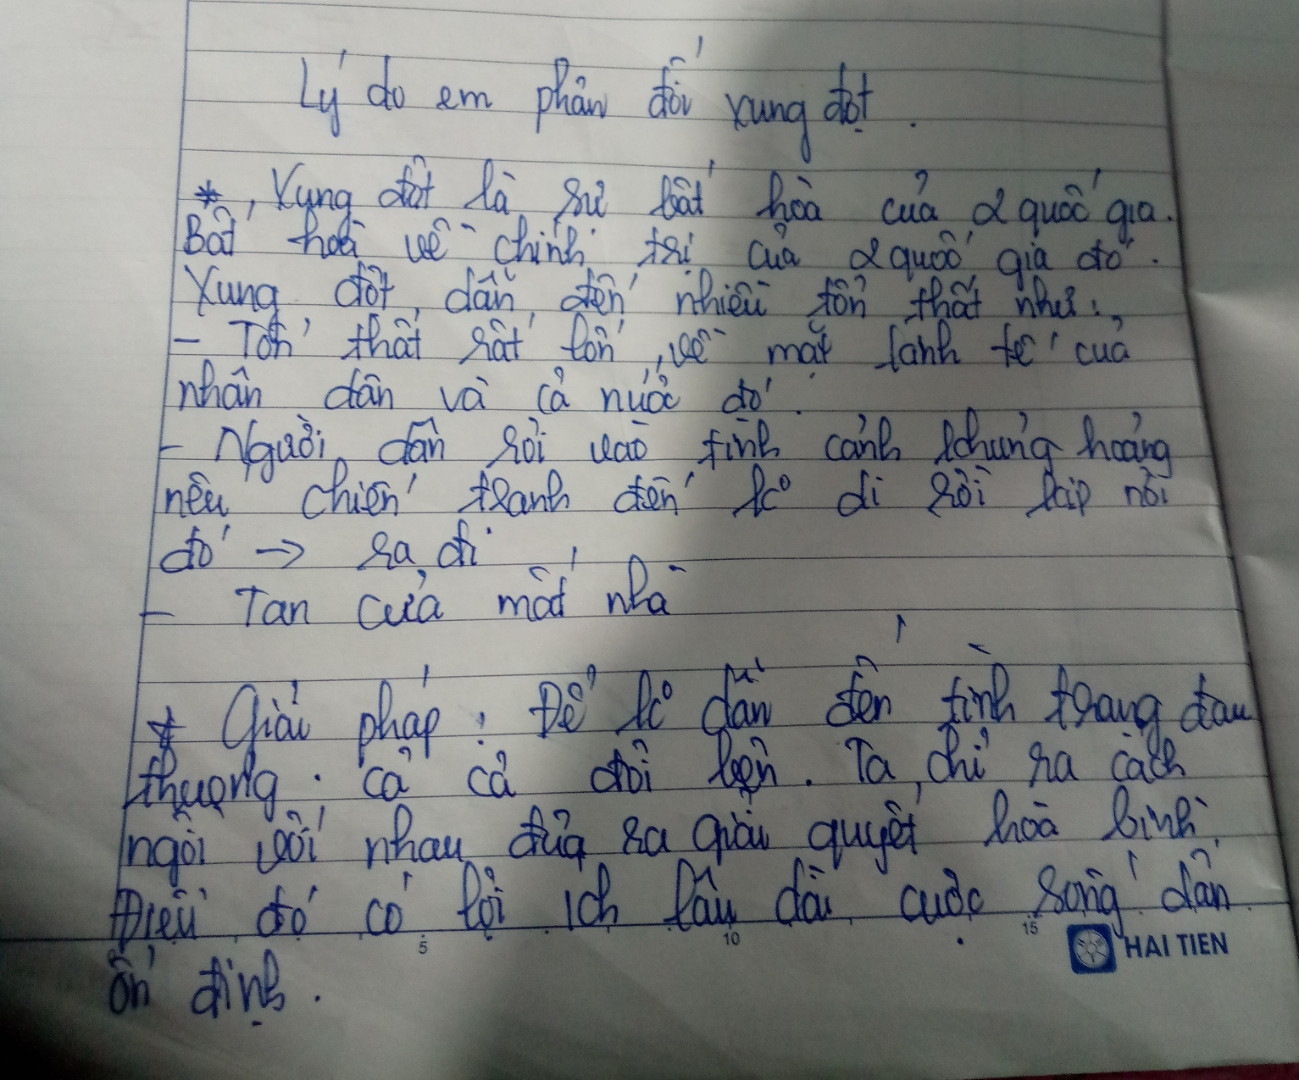 Lý do em phản đối xung đột.
* Xung đột là sự bất hòa của 2 quốc gia.
Bất hoà về chính trị của 2 quốc gia đó.
Xung đột dẫn đến nhiều tổn thất như:
- Tổn thất rất lớn về mặt lánh tế của
nhân dân và cả nước đó.
- Người dân rơi vào tình cảnh khủng hoảng
nếu chiến tranh đến ko di rời kịp nơi
đó → ra đi
- Tan cửa mất nhà
* Giải pháp: Để ko dẫn đến tình trạng đau
thương. cả cả đôi bên. Ta chỉ ra cách
ngồi với nhau đưa ra giải quyết hoà bình.
Điều đó có lợi ích lâu dài cuộc sống dân
ổn định.
5 10 15 HAI TIEN